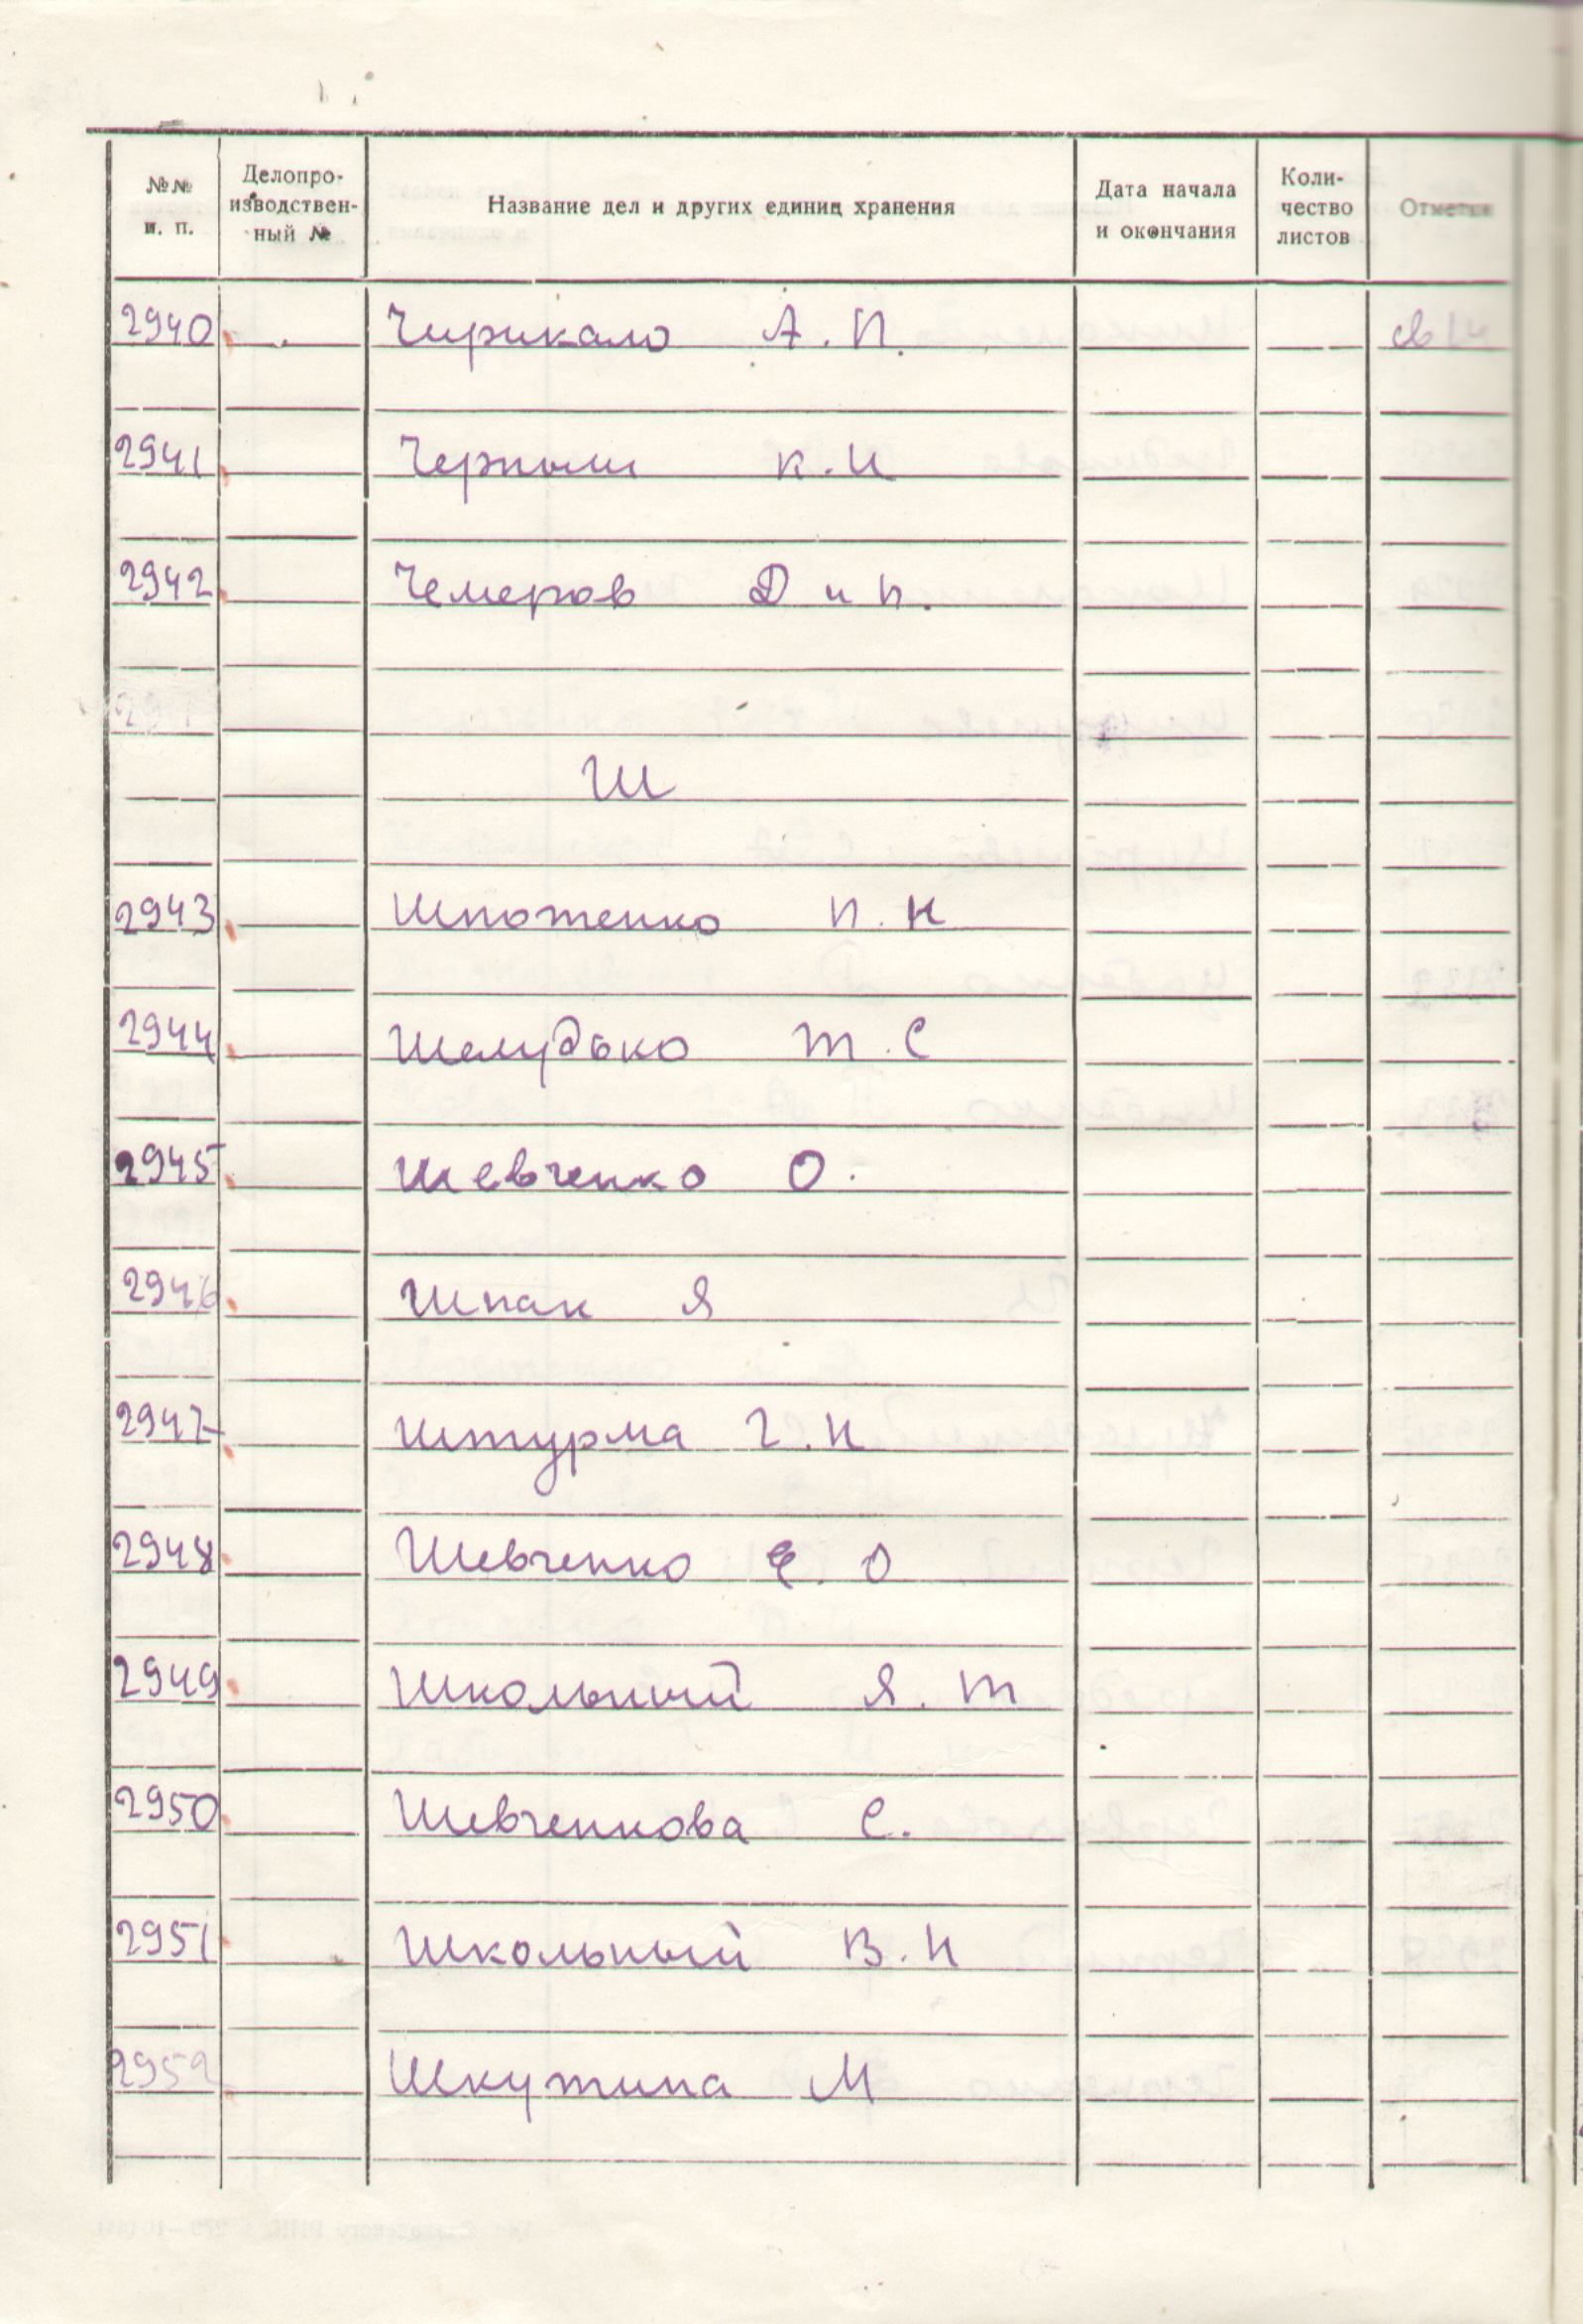 №№ п. п. Делопроизводственный № Название дел и других единиц хранения Дата начала и окончания Количество листов Отметки
2940 Чирикало А. П.
2941 Черныш К. И
2942 Чемеров Д и П.
Ш
2943 Шпотенко П. К
2944 Шелудько Т. С
2945 Шевченко О.
2946 Шпак Я
2947 Штурма Г. И
2948 Шевченко Е. О
2949 Школьный Я. Т
2950 Шевченкова С.
2951 Школьный В. И
2952 Шкутина М